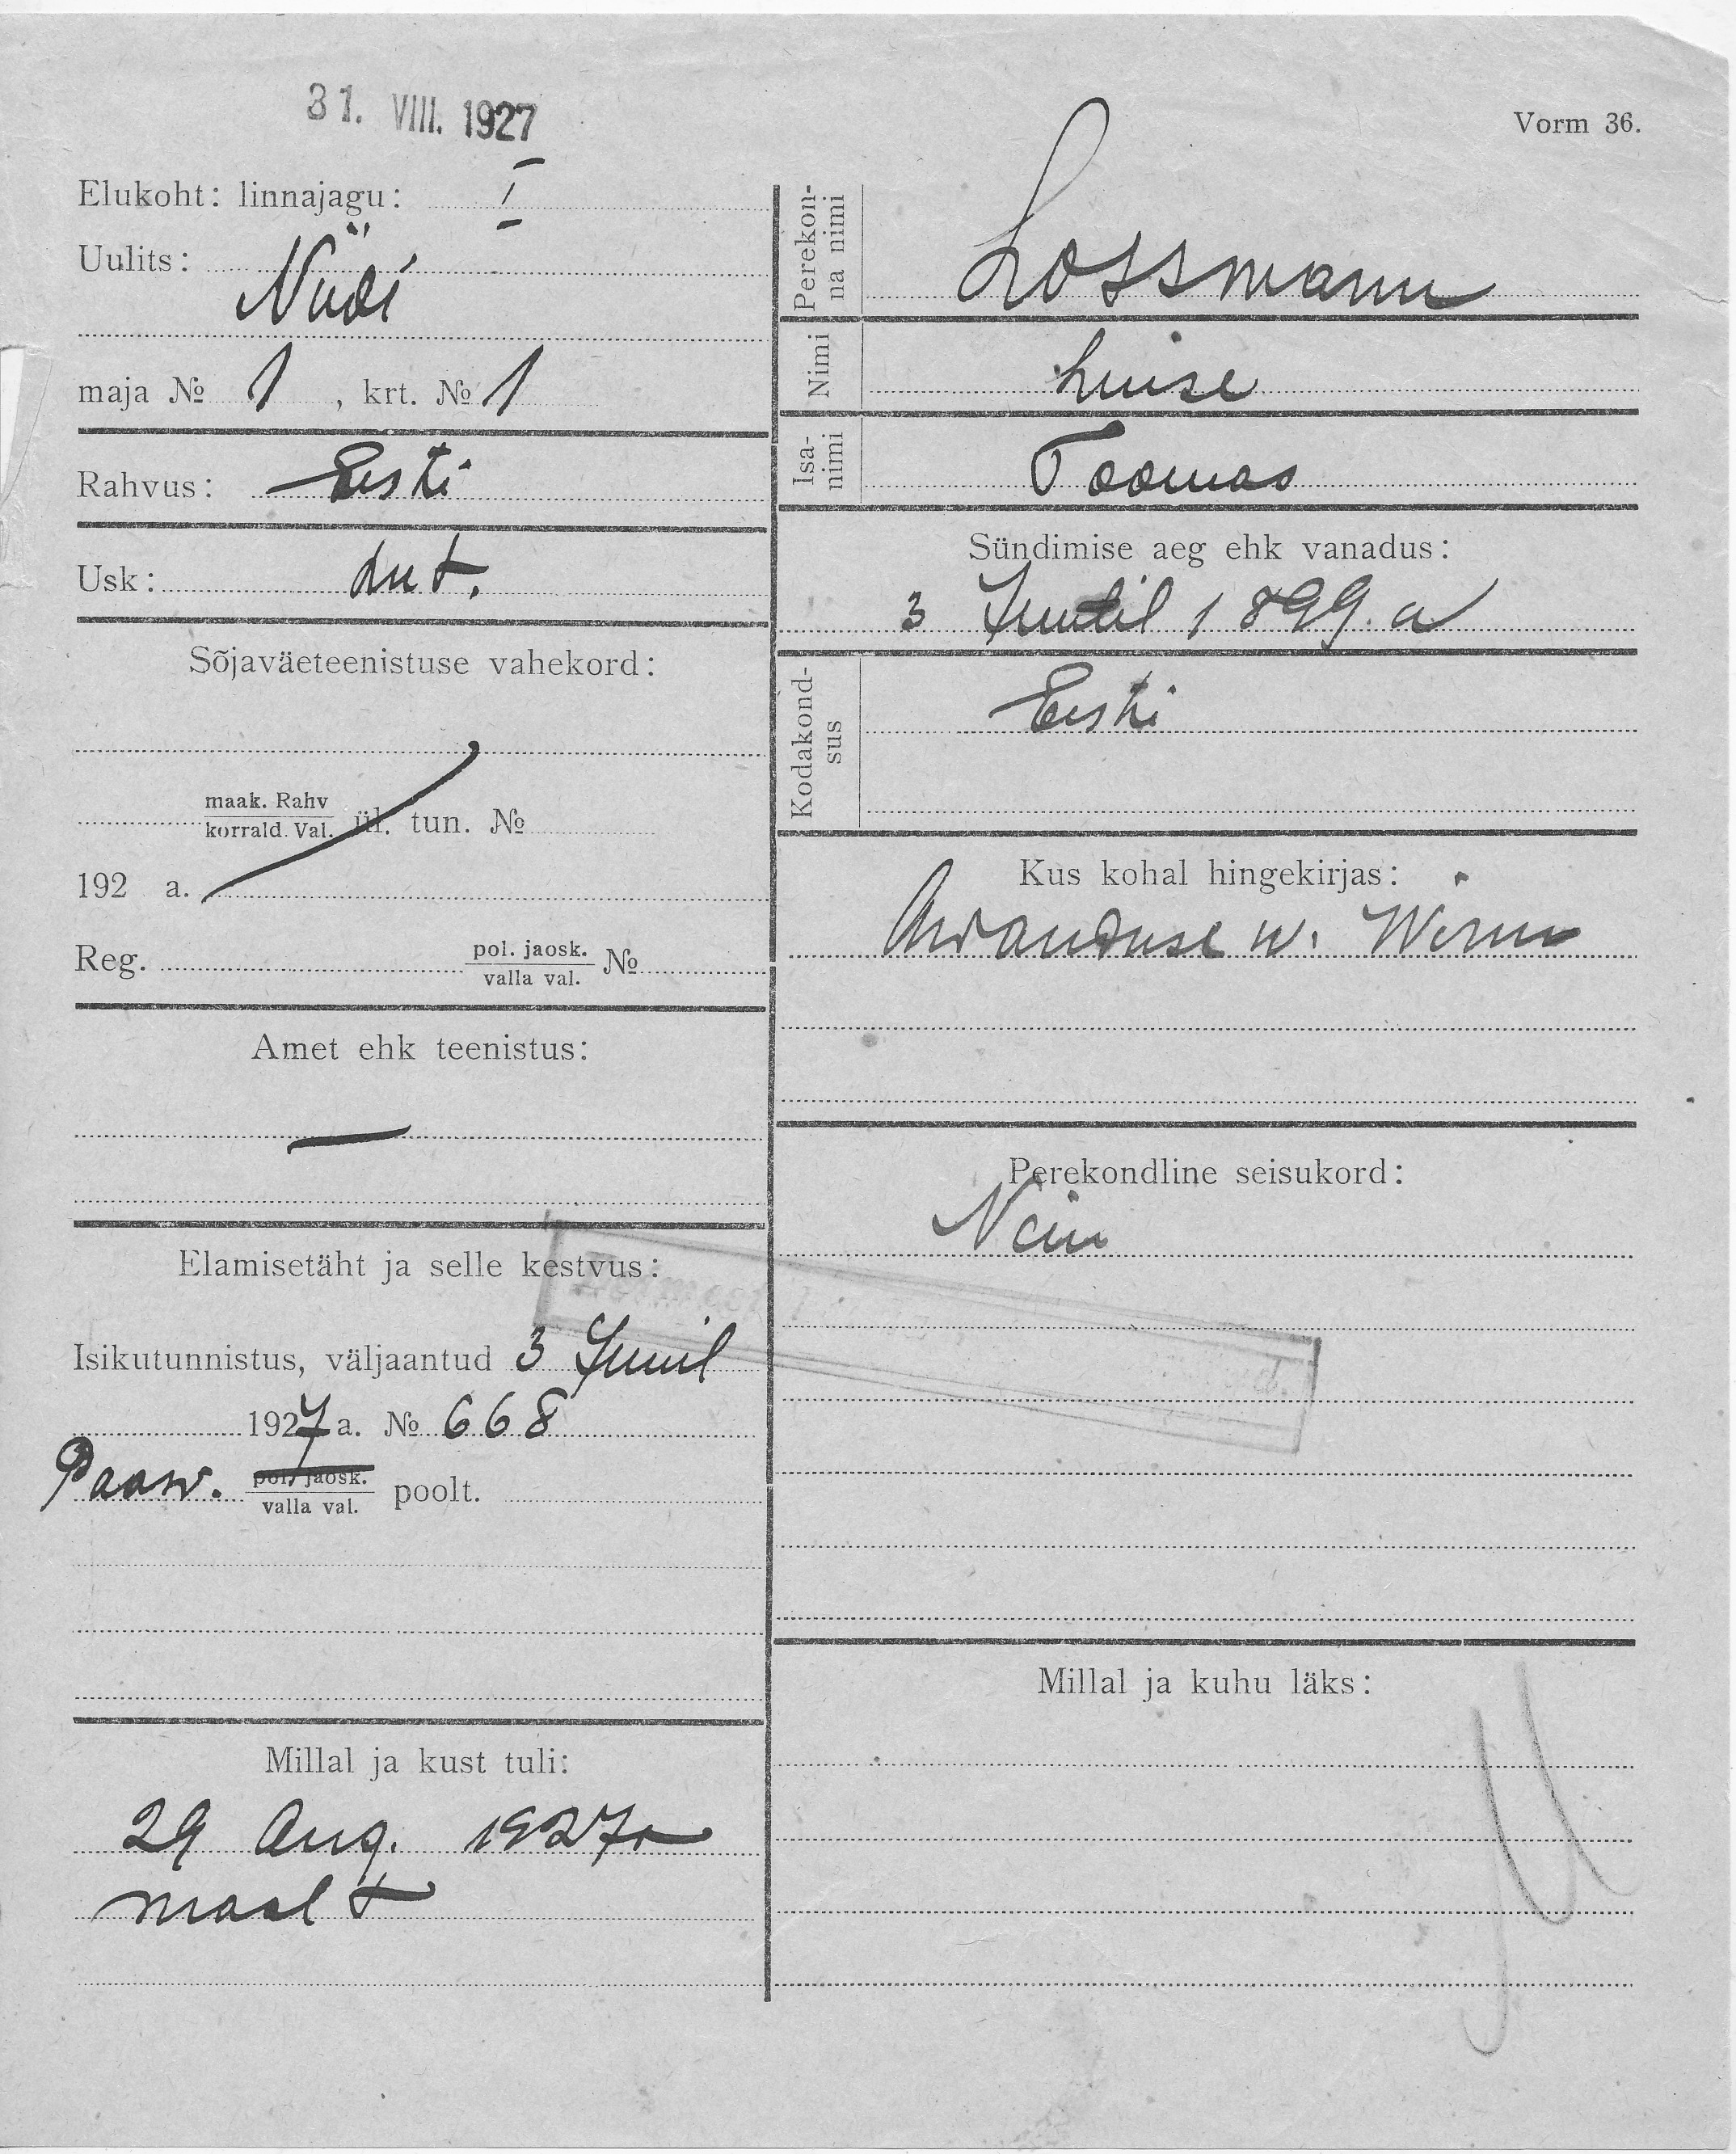 31. VIII. 1927
Vorm 36.
Elukoht: linnajagu: I
Uulits: Nüdi
maja № 1, krt. № 1
Rahvus: Eesti
Usk: Lut.
Sõjaväeteenistuse vahekord:
maak. Rahv
korrald. Val. ül. tun. №
192 a.
Reg. pol. jaosk. №
valla val.
Amet ehk teenistus:
—
Elamisetäht ja selle kestvus:
Isikutunnistus, väljaantud 3 Junil
1927 a. № 668
Paasw. pol. jaosk.
valla val. poolt.
Millal ja kust tuli:
29 Aug. 1927 a
maalt
Perekon-
na nimi Lossmann
Nimi Luise
Isa-
nimi Toomas
Sündimise aeg ehk vanadus:
3 1899. a
Kodakond-
sus Eesti
Kus kohal hingekirjas:
w. Wirum
Perekondline seisukord:
Neiu
Millal ja kuhu läks: